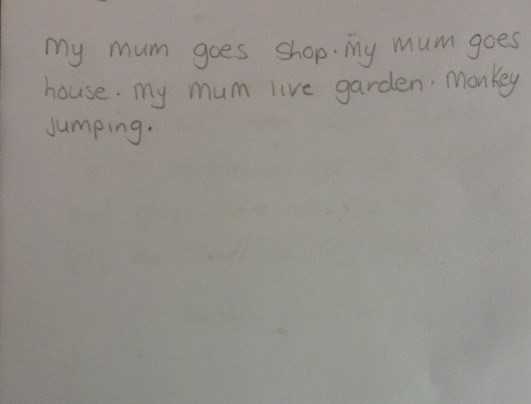 my mum goes shop. my mum goes
house. my mum live garden. monkey
Jumping.